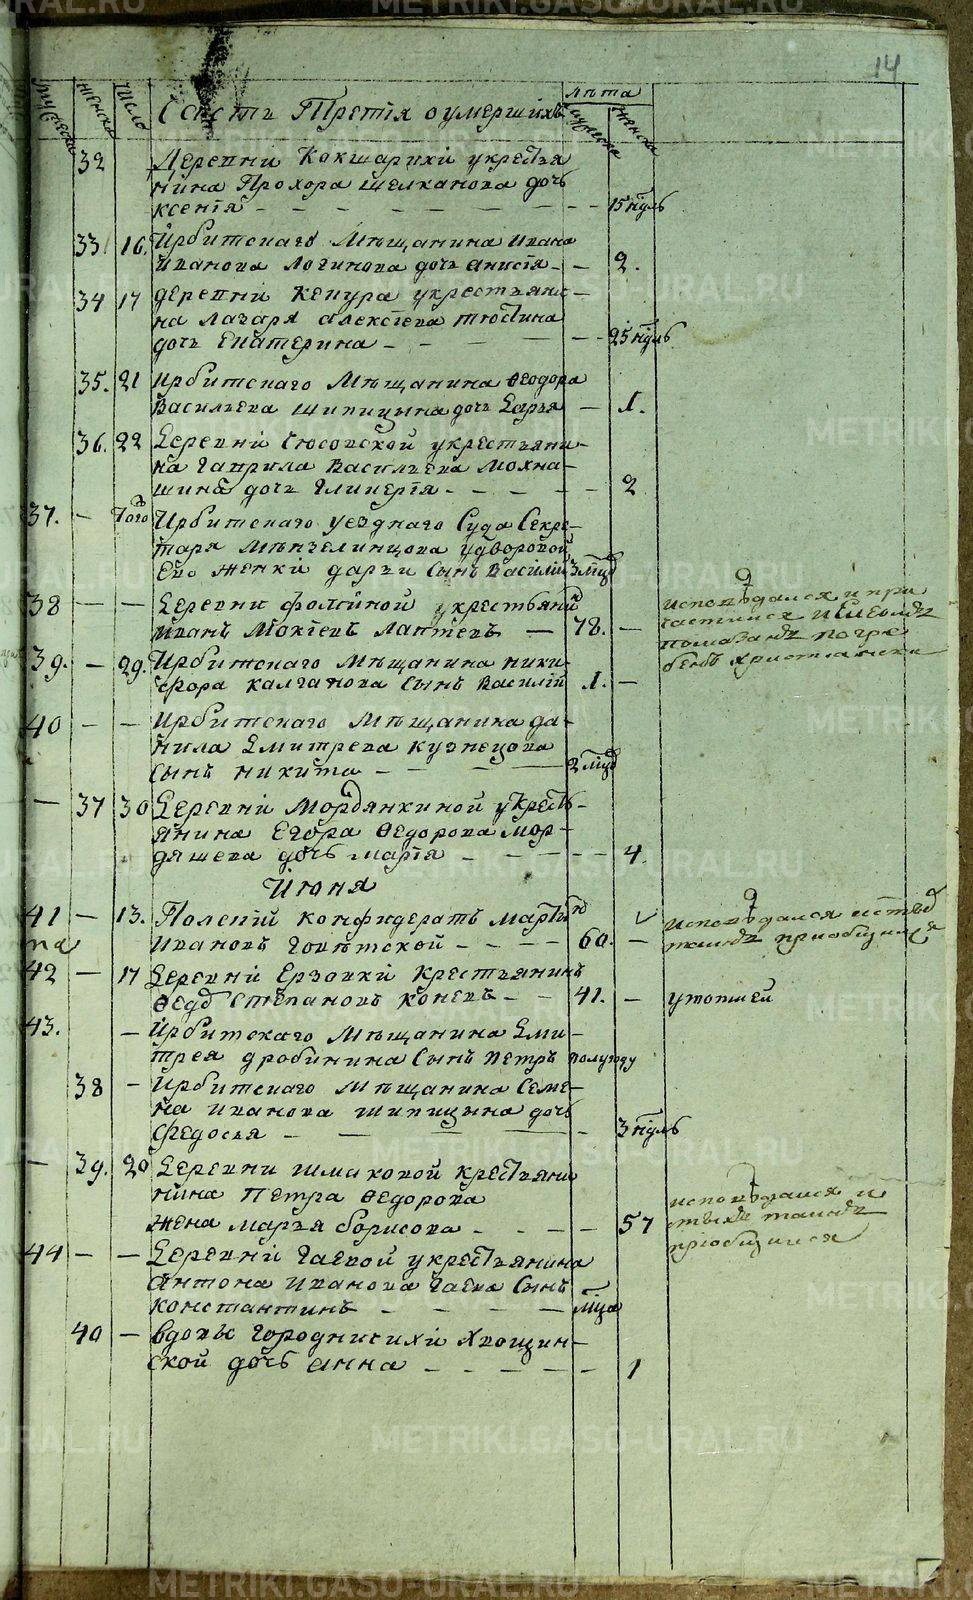 14
мужеска женска число Часть Третїя оумершихъ лѣта мужеска женска
32 Деревни Кокшарихи укрестья
нина Прохора Щелканова дочь
ксенїя 15 нѣдль
33 16. Ирбитскаго Мѣщанина Ивана
Иванова Логинова дочь анисїя 2.
34 17 деревни Кепура укрестьяни
на Лазаря алексїева тюстина
дочь Екатерина 25 нѣдль
35. 21 ирбитскаго Мѣщанина Ѳеодора
Васильева шипицына дочь Дарья 1.
36. 22 Деревни Чюсовской укрестьяни
на гаврила Васильева Мохна
шина дочь гликерїя 2
37. Того Ирбитскаго уезднаго Суда Секре
таря Мѣнзелинцова удворовой
Ево женки дарьи Сынъ Василий 3 мцъ
38 Деревни фоминой укрестьяни
Иванъ Мокїевъ лаптевъ 78. исповѣдался и при
частился И Елеомъ
помазанъ погре
бенъ христїански
39. 29. Ирбитскаго Мѣщанина ники
фора калганова Сынъ Василїй 1.
40 Ирбитскаго Мѣщанина да
нила Дмитрева кузнецова
Сынъ никита 2 мцъ
37 30 Деревни Мордянкиной укресть
янина Егора Ѳедорова Мор
дяшева дочь марїя 4.
Июня
41 13. Полский конфидератъ мартын
на Ивановъ 60. исповѣдался истыѣ
таинъ приобщился
42 17 Деревни Ерзовки крестьянинъ
Ѳедо Степановъ коневъ 41. утопшей
43. Ирбитскаго Мѣщанина Дми
трея дробинина Сынъ петръ полугоду
38 Ирбитскаго Мѣщанина Семе
на иванова шипицына дочь
федосья 3 нѣдль
39. 20 Деревни шмаковой крестьяни
нина петра Ѳедорова
жена марья борисова 57 исповѣдался и
стыхъ таинъ
прїобщился
44 Деревни гаевой укрестьянина
антона иванова гаева Сынъ
константинъ мца
40 вдовы городнисихи Хвощин
ской дочь анна 1
METRIKI.GASO-URAL.RU